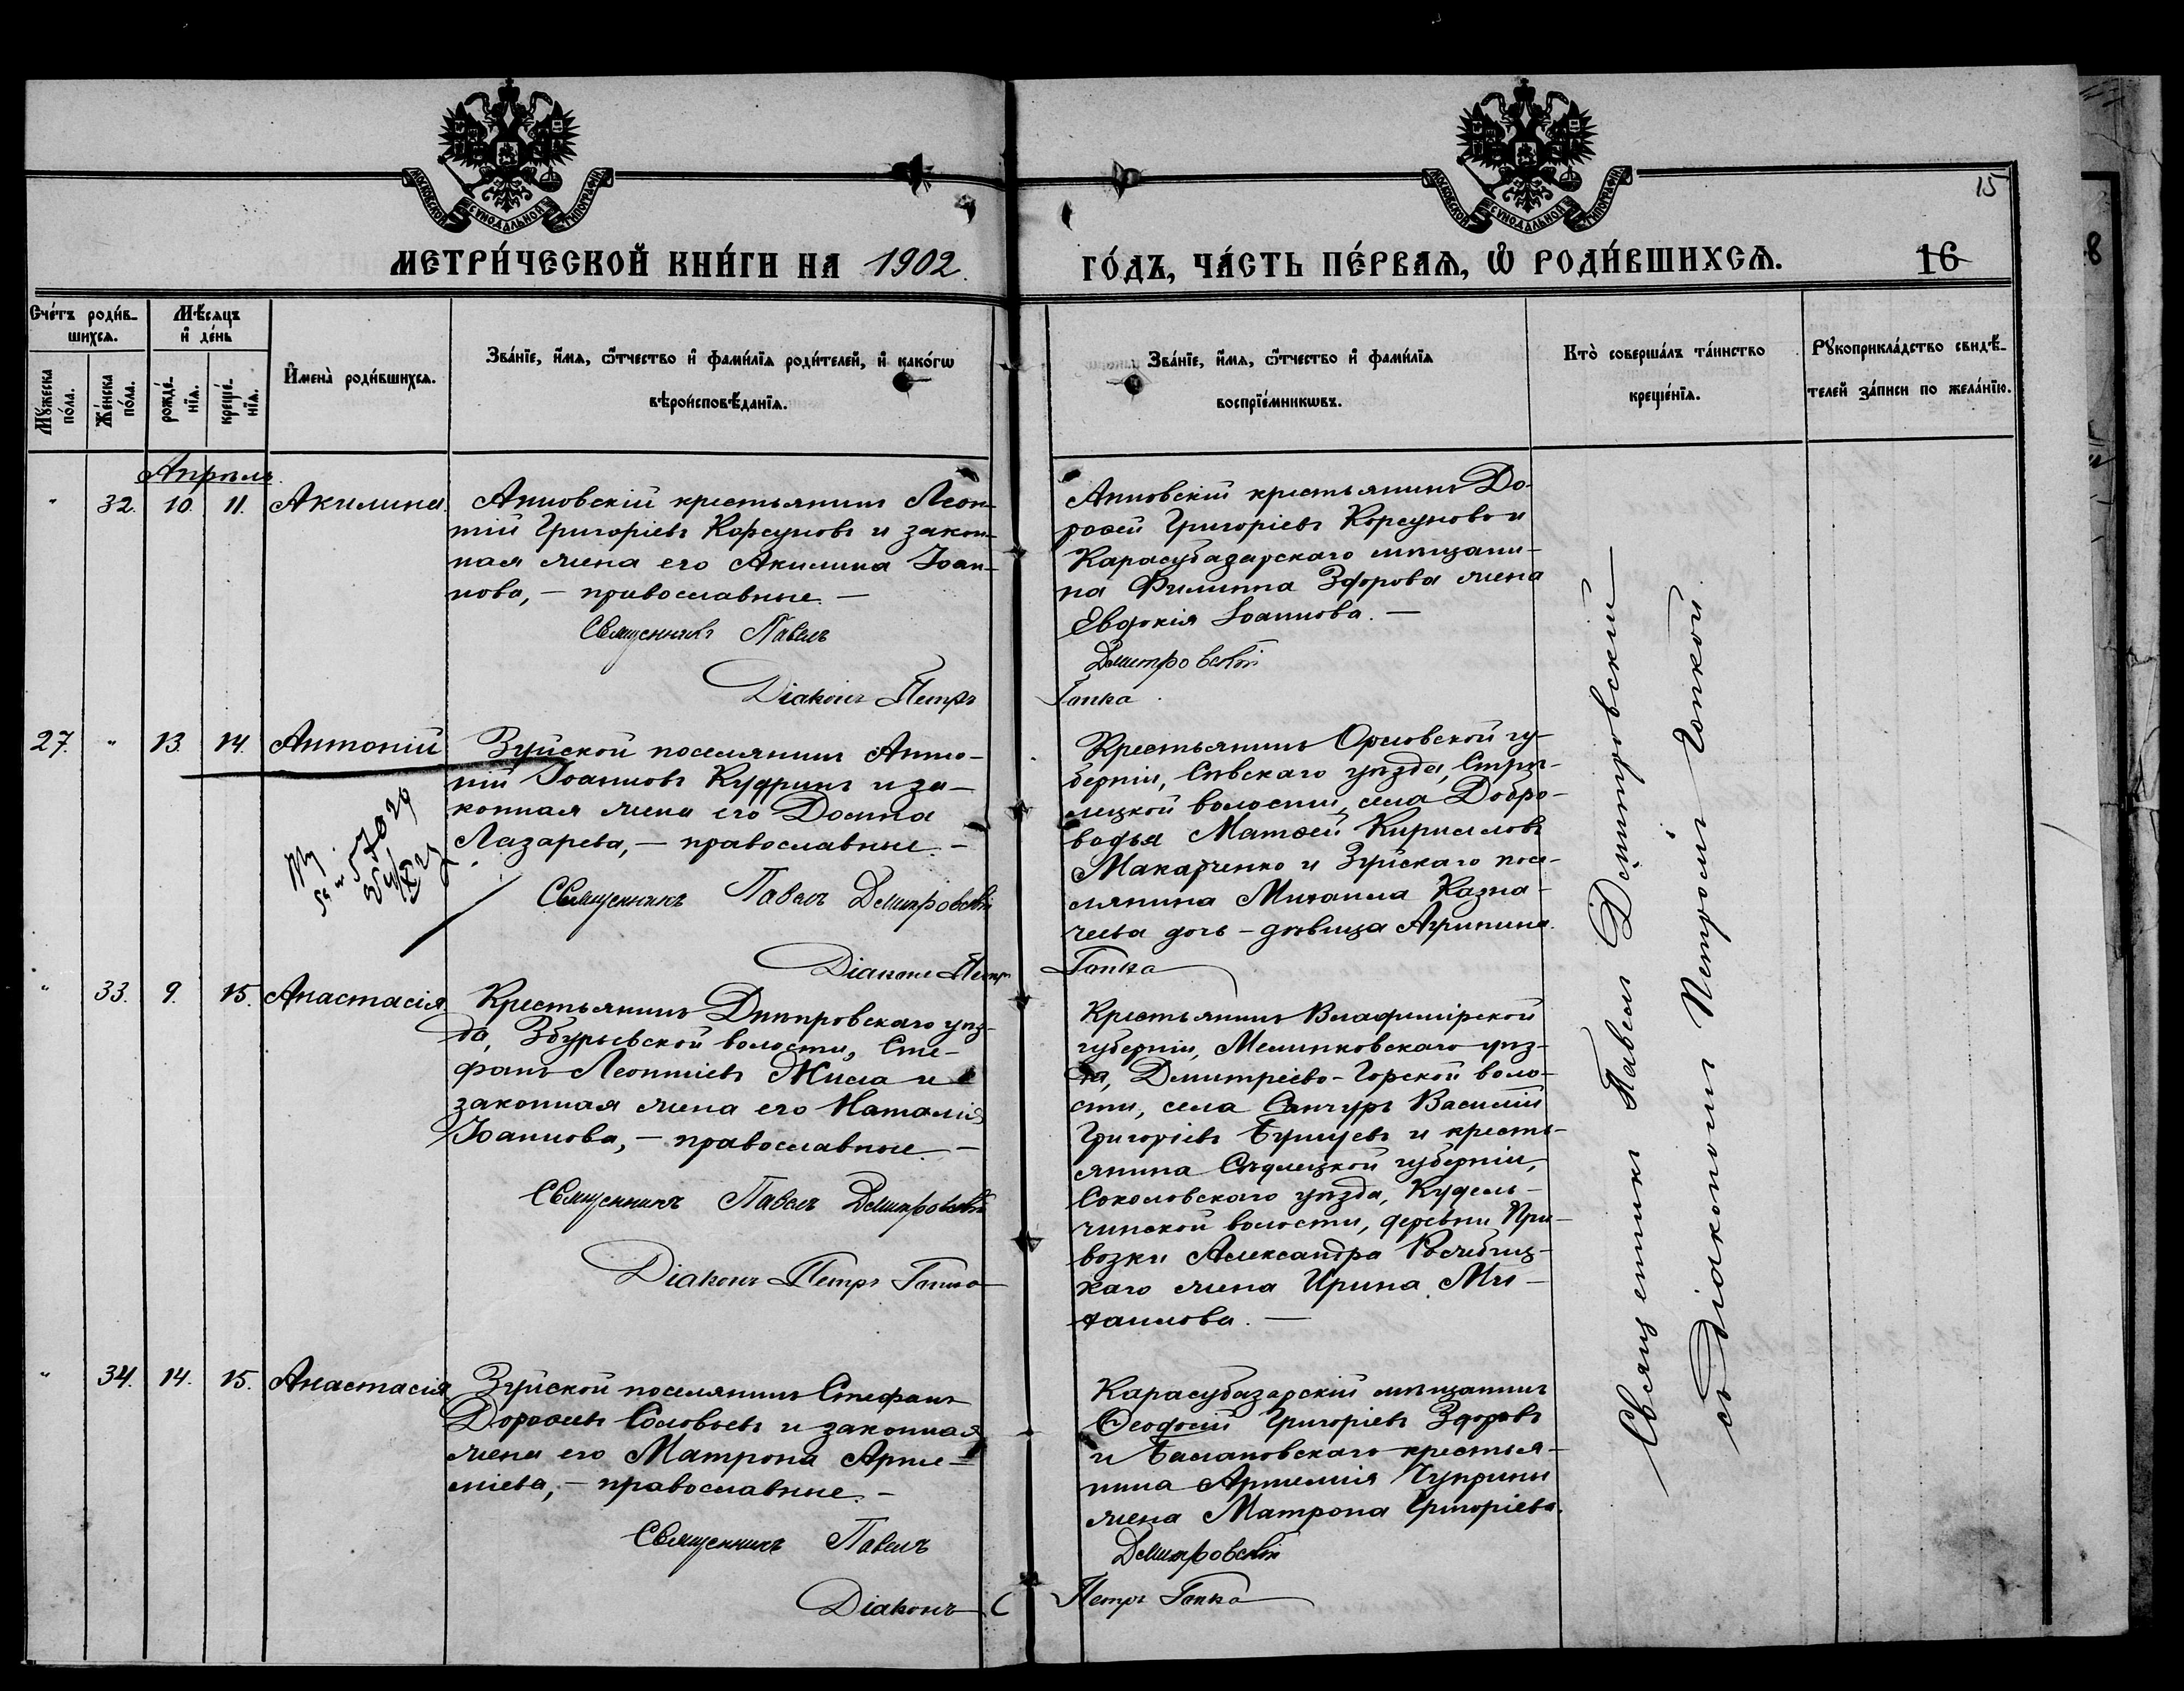 МОСКОВСКОЙ СѴНОДАЛЬНОЙ ТИПОГРАФІИ
МОСКОВСКОЙ СѴНОДАЛЬНОЙ ТИПОГРАФІИ
15
МЕТРИ́ЧЕСКОЙ КНИ́ГИ НА 1902.
ГО́ДЪ, ЧА́СТЬ ПЕ́РВАЯ, Ѡ РОДИ́ВШИХСЯ.
16
8
Сче́тъ роди́в-
шихся.
Мѣ́сяцъ
и де́нь
Мꙋ́жеска
по́ла.
Же́нска
по́ла.
рожде́-
нїя.
креще́-
нїя.
Имена̀ роди́вшихся.
Зва́нїе, и́мя, ѻ́тчество и фами́лїя роди́телей, и како́гѡ
вѣроисповѣ́данїя.
Зва́нїе, и́мя, ѻ́тчество и фами́лїя
воспрїе́мникѡвъ.
Кто̀ соверша́лъ та́инство
креще́нїя.
Рꙋкоприкла́дство свидѣ́-
телей за́писи по жела́нїю.
Апрѣль.
" 32. 10. 11. Акилина.
Анновскій крестьянинъ Леон-
тій Григоріевъ Корсуновъ и закон-
ная жена его Акилина Іоан-
нова, — православные. —
Священникъ Павелъ
Діаконъ Петръ
Анновскій крестьянинъ До-
роѳей Григоріевъ Корсуновъ и
Карасубазарскаго мѣщани-
на Филиппа Здорова жена
Евдокія Іоаннова. —
Дмитровскій
Гапка
27. " 13. 14. Антоній
Зуйской поселянинъ Анто-
ній Іоанновъ Кудринъ и за-
конная жена его Домна
Лазарева, — православные. —
Священникъ Павелъ Дмитровскій
Діаконъ Петръ
Крестьянинъ Орловской гу-
берніи, Сѣвскаго уѣзда, Стрѣ-
лецкой волости, села Добро-
водья Матѳей Кирилловъ
Макарченко и Зуйскаго посе-
лянина Михаила Казна-
чеева дочь — дѣвица Агрипина.
Гапка
" 33. 9. 15. Анастасія.
Крестьянинъ Днѣпровскаго уѣз-
да, Збурьевской волости, Сте-
фанъ Леонтіевъ Жила и
законная жена его Наталія
Іоаннова, — православные. —
Священникъ Павелъ Дмитровскій
Діаконъ Петръ Гапка
Крестьянинъ Владимірской
губерніи, Меленковскаго уѣз-
да, Дмитріево-Горской воло-
сти, села Санчуръ Василій
Григоріевъ и кресть-
янина Сѣдлецкой губерніи,
Соколовскаго уѣзда, Кудель-
чинской волости, деревни При-
возки Александра
каго жена Ирина Ми-
хаилова. —
" 34. 14. 15. Анастасія
Зуйской поселянинъ Стефанъ
Дороѳеевъ Соловьевъ и законная
жена его Матрона Арте-
міева, — православные. —
Священникъ Павелъ
Діаконъ
Карасубазарскій мѣщанинъ
Ѳеодосій Григоріевъ Здоровъ
и Баслановскаго крестья-
нина Артемія Чуприны
жена Матрона Григоріева.
Дмитровскій
Петръ Гапка
Священникъ Павелъ Дмитровскій
съ діакономъ Петромъ Гапкой.